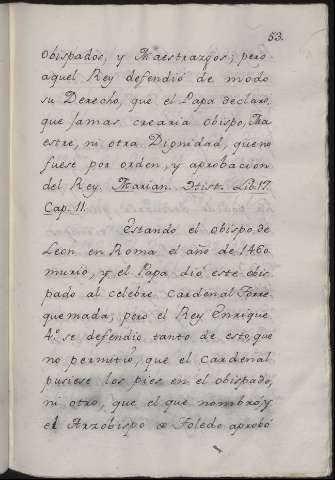 53.
obispados, y Maestrazgos; pero
aquel Rey defendió de modo
su Derecho, que el Papa declaro,
que Jamas crearia obispo, Ma
estre, ni otra Dignidad, que no
fuese por orden, y aprobacion
del Rey. Marian. Hist. Lib. 17.
Cap. 11.
Estando el obispo de
Leon en Roma el año de 1460
murio, y el Papa dió este obis
pado al celebre Cardenal Torre
quemada; pero el Rey Enrique
4.º se defendio tanto de esto, que
no permitio, que el Cardenal
pusiese los pies en el obispado,
ni otro, que el que nombro, y
el Arzobispo de Toledo aprobó